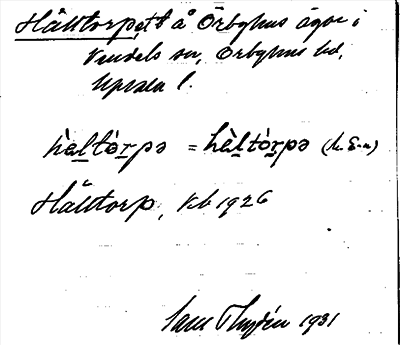 Hålltorp, ett å Örbyhus ägor i
Vendels sn, Örbyhus hd,
Upsala l.
hà̀ltórpə = hæ̀ltórpə
Hålltorp, Kb 1926
1931